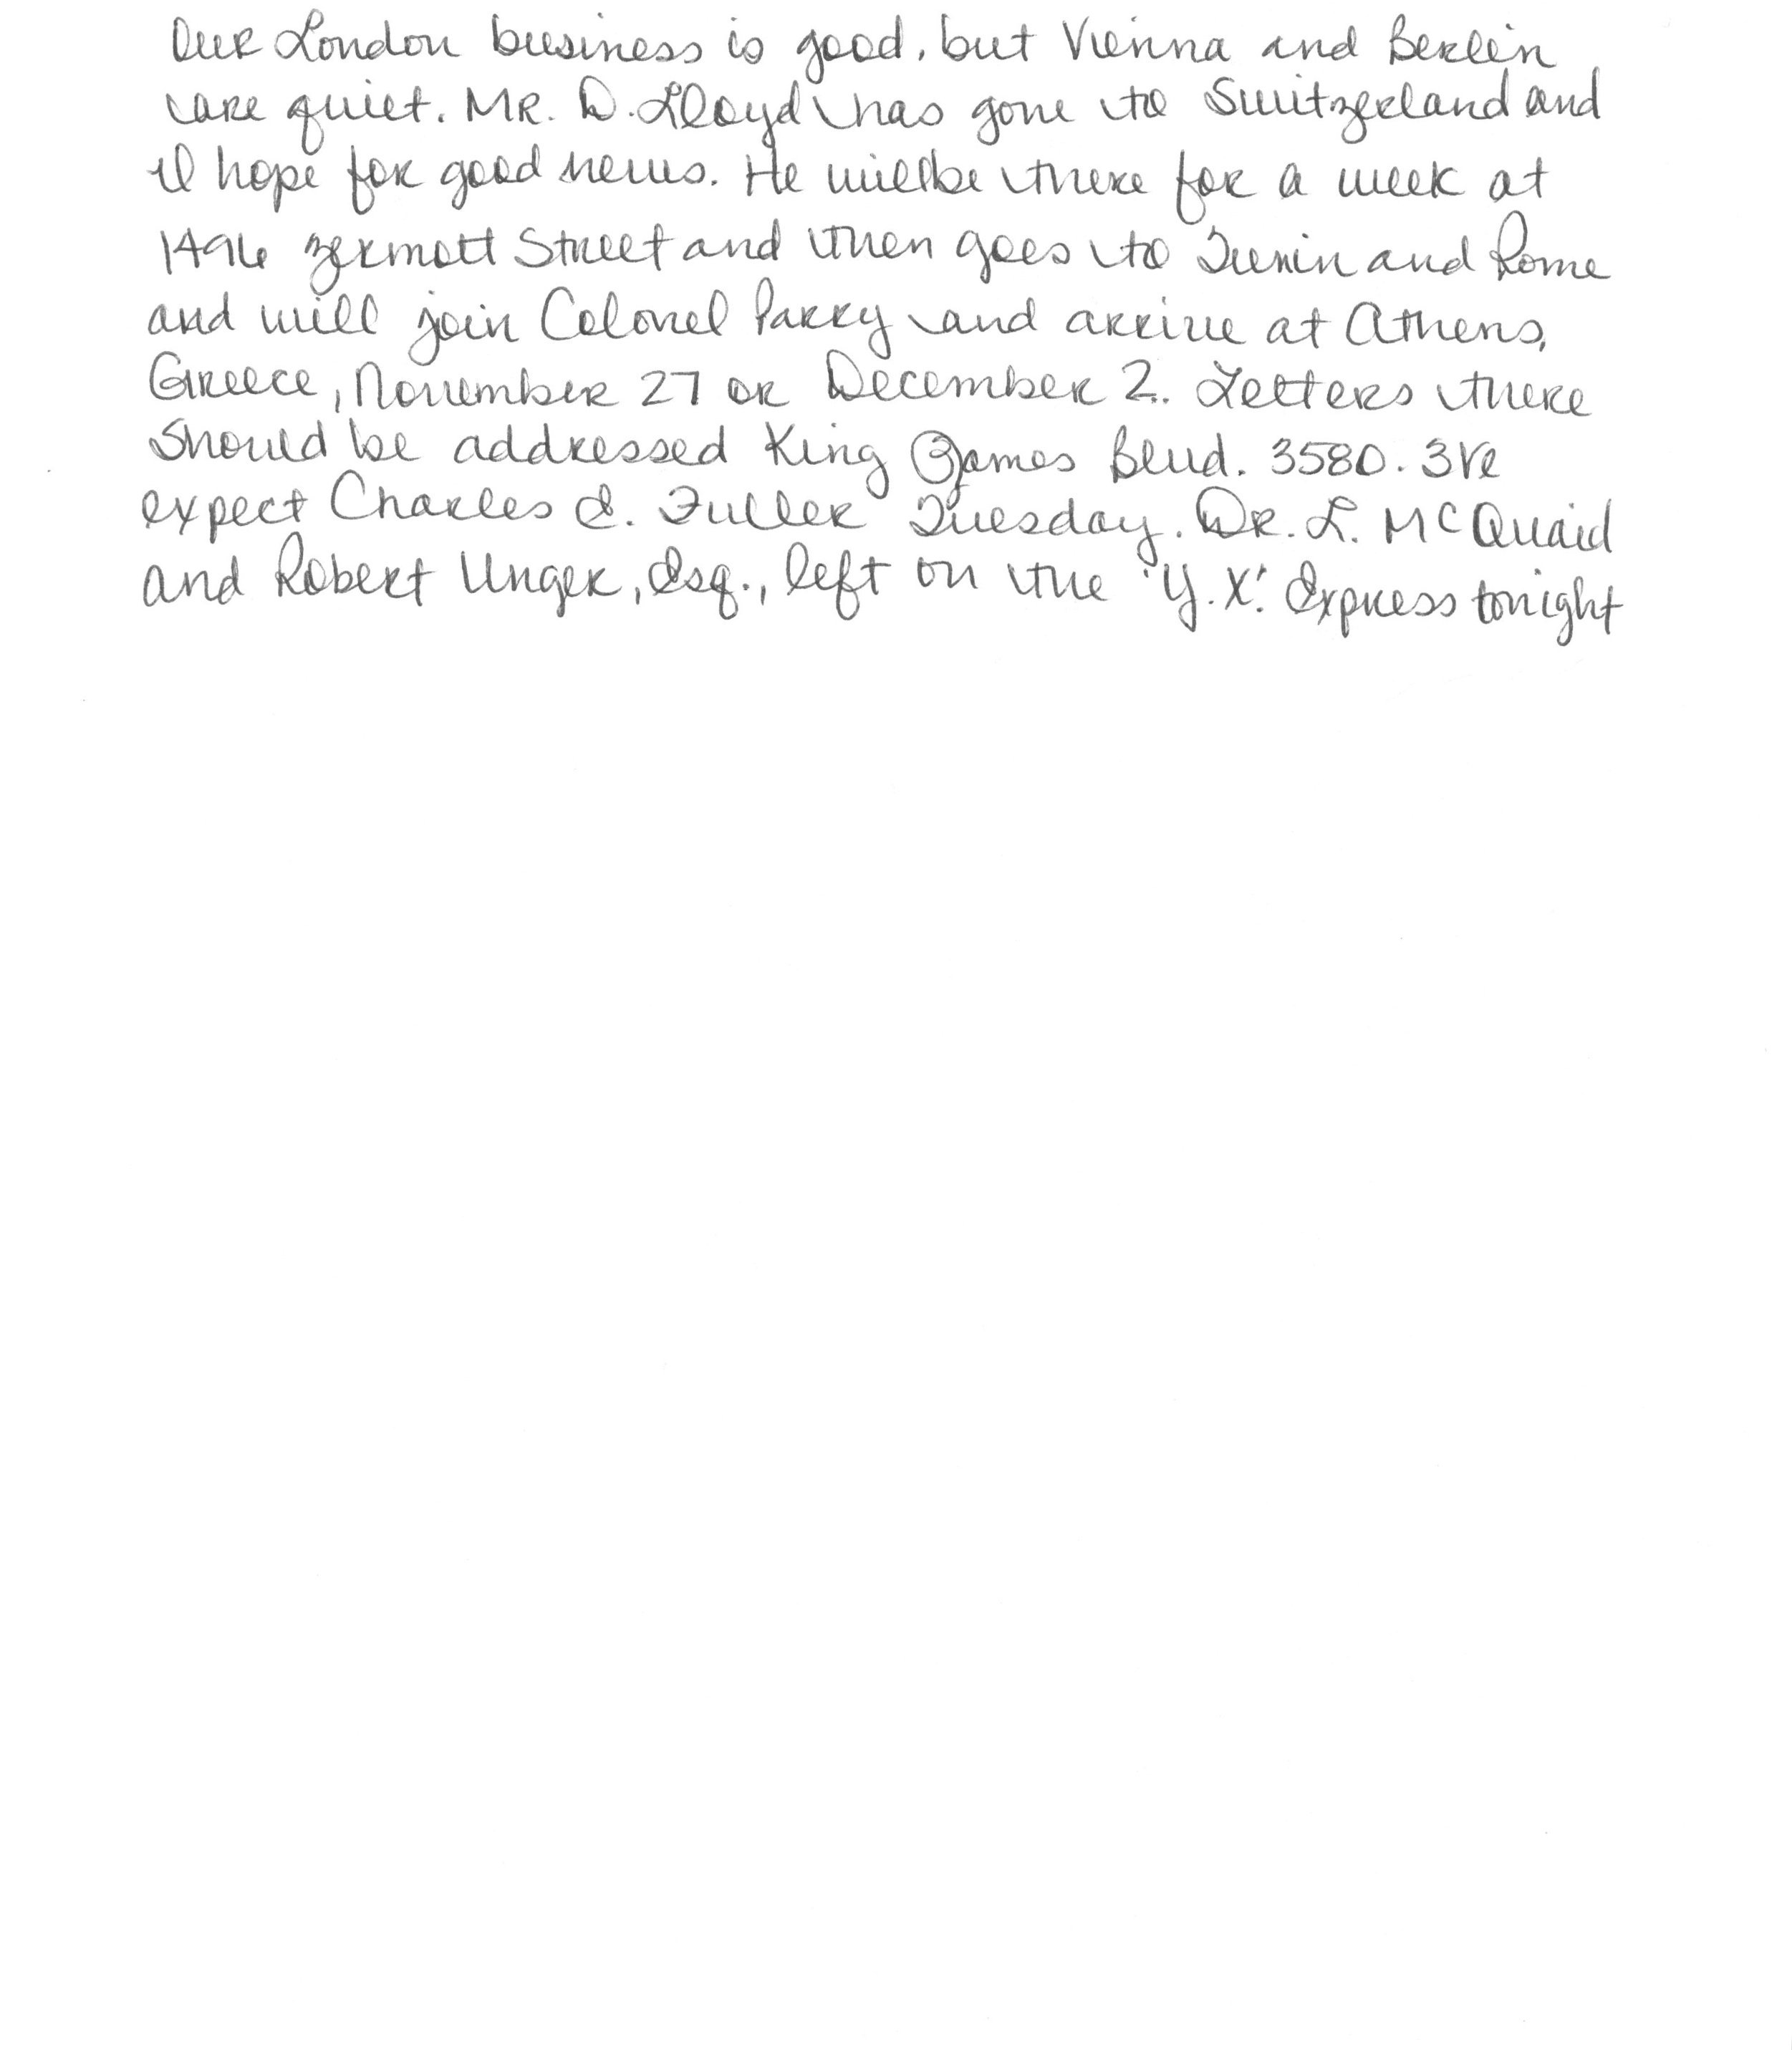 Our London business is good, but Vienna and Berlin
are quiet. MR. D. Lloyd has gone to Switzerland and
I hope for good news. He will be there for a week at
1496 Zermott Street and then goes to Turin and Rome
and will join Colonel Parry and arrive at Athens,
Greece, November 27 or December 2. Letters there
should be addressed King James Blvd. 3580. We
expect Charles E. Fuller Tuesday. Dr. L. McQuaid
and Robert Unger, Esq., left on the 'Y.X.' Express tonight